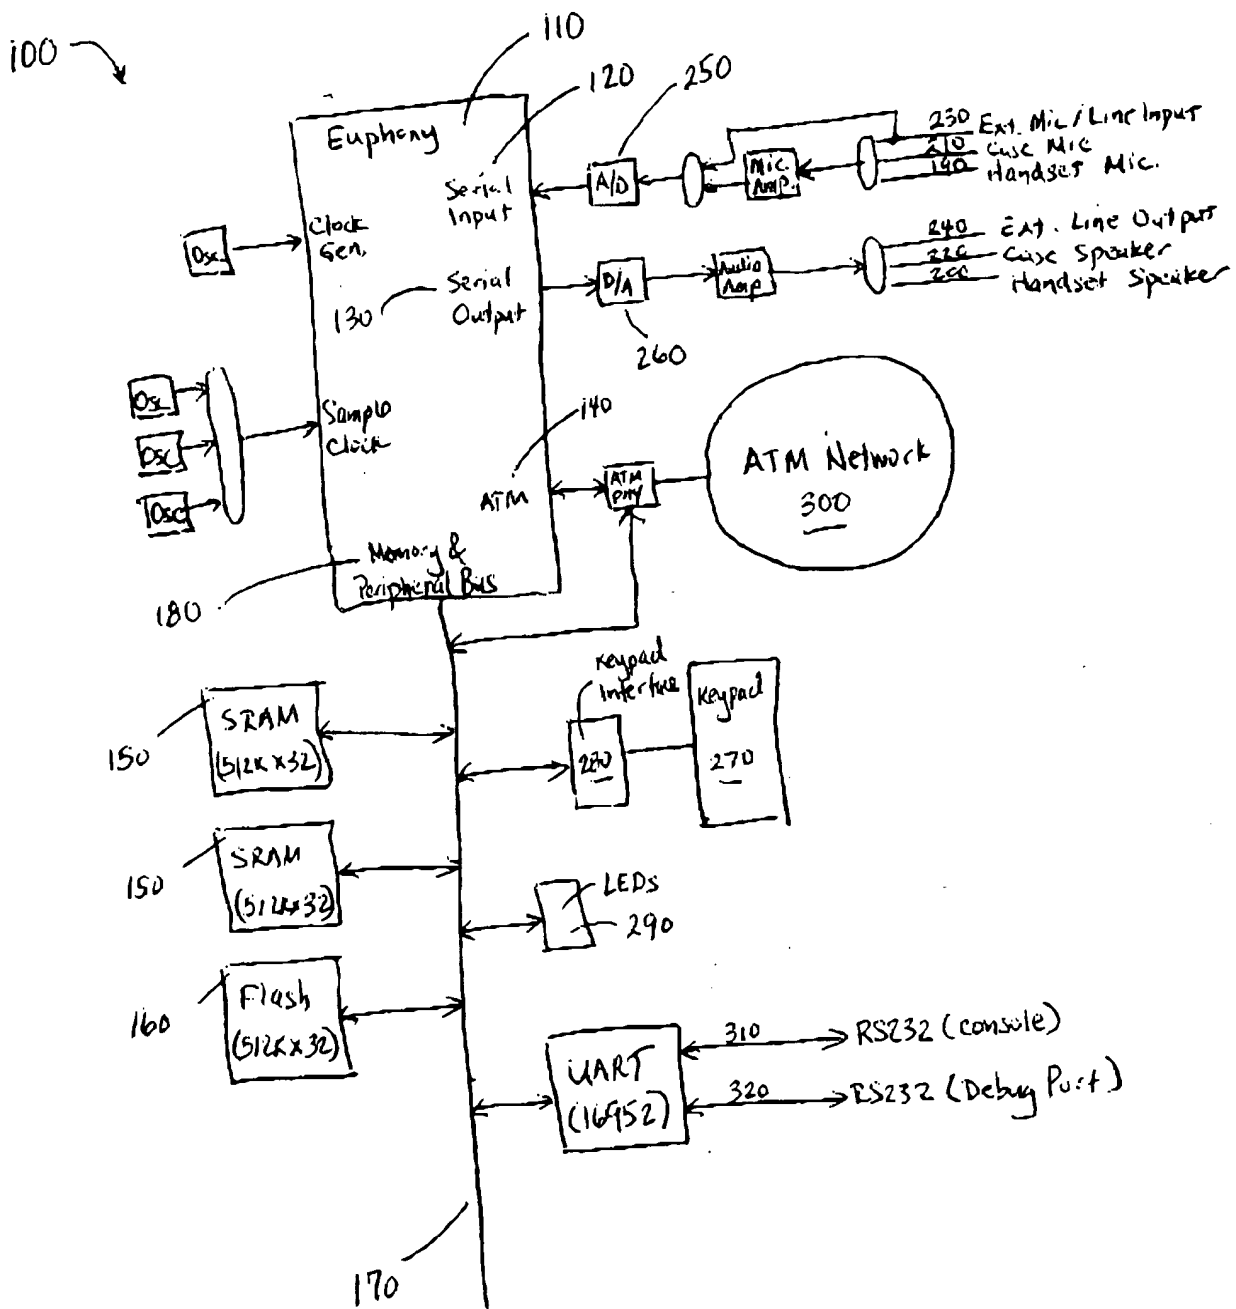 100
110
120
250
Euphony
Serial
Input
A/D
Mic.
Amp.
230 Ext. Mic / Line Input
210 Case Mic
190 Handset Mic.
Osc.
Clock
Gen.
130
Serial
Output
D/A
260
Audio
Amp
240 Ext. Line Output
220 Case Speaker
200 Handset Speaker
Osc
Osc
Osc
Sample
Clock
140
ATM
ATM
PHY
ATM Network
300
180
Memory &
Peripheral Bus
150
SRAM
(512K x 32)
Keypad
Interface
280
Keypad
270
150
SRAM
(512K x 32)
LEDs
290
160
Flash
(512K x 32)
UART
(16952)
310
RS232 (console)
320
RS232 (Debug Port)
170